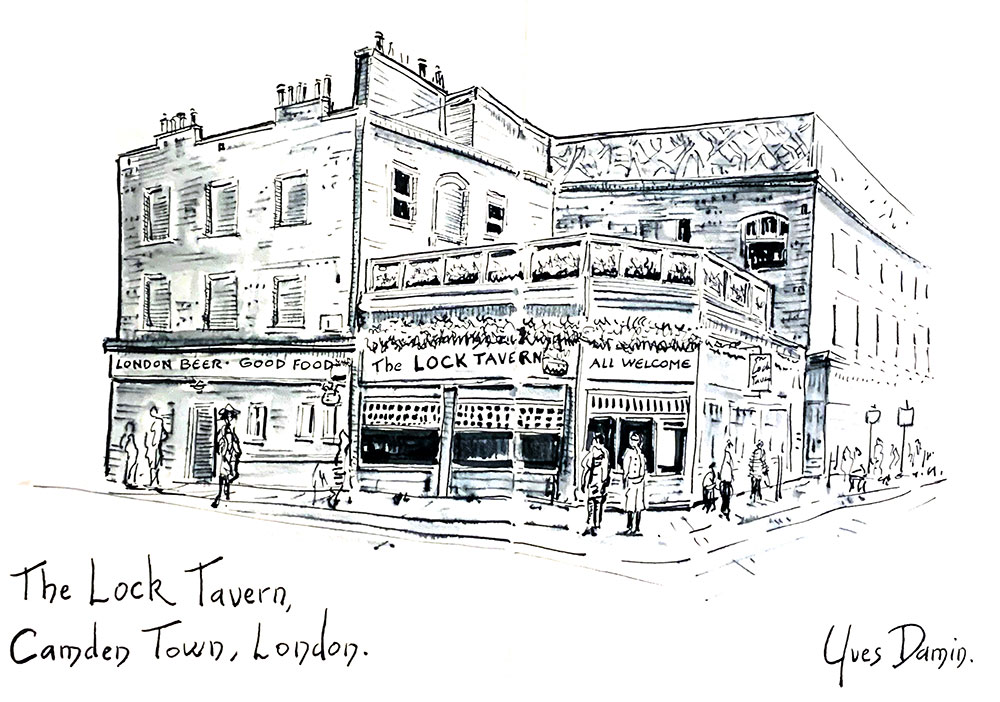 LONDON BEER · GOOD FOOD
The LOCK TAVERN
ALL WELCOME
The
Lock
Tavern
The Lock Tavern,
Camden Town, London.
Yves Damin.